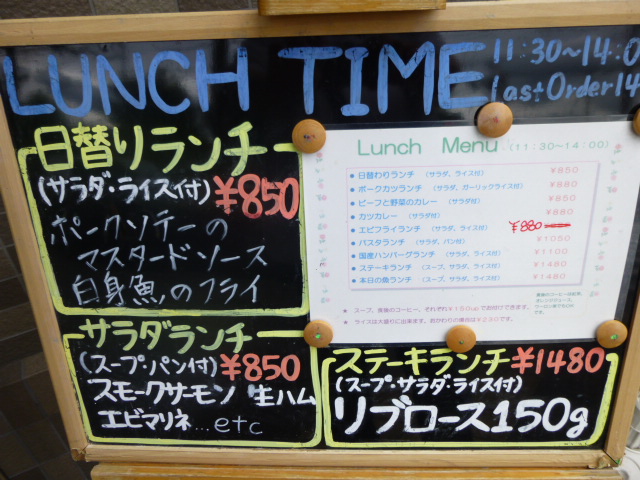 LUNCH TIME
11:30~14:0
Last Order 14
日替りランチ
(サラダ・ライス付) ¥850
ポークソテーの
マスタードソース
白身魚のフライ
サラダランチ
(スープ・パン付) ¥850
スモークサーモン 生ハム
エビマリネ...etc
Lunch Menu (11:30~14:00)
● 日替わりランチ (サラダ、ライス付) ¥850
● ポークカツランチ (サラダ、ガーリックライス付) ¥880
● ビーフと野菜のカレー (サラダ付) ¥850
● カツカレー (サラダ付) ¥880
● エビフライランチ (サラダ、ライス付) ¥880
● パスタランチ (サラダ、パン付) ¥1050
● 国産ハンバーグランチ (サラダ、ライス付) ¥1100
● ステーキランチ (スープ、サラダ、ライス付) ¥1480
● 本日の魚ランチ (スープ、サラダ、ライス付) ¥1480
★ スープ、食後のコーヒー、それぞれ¥150upでお付けできます。
★ ライスは大盛りに出来ます。
ステーキランチ ¥1480
(スープ・サラダ・ライス付)
リブロース150g